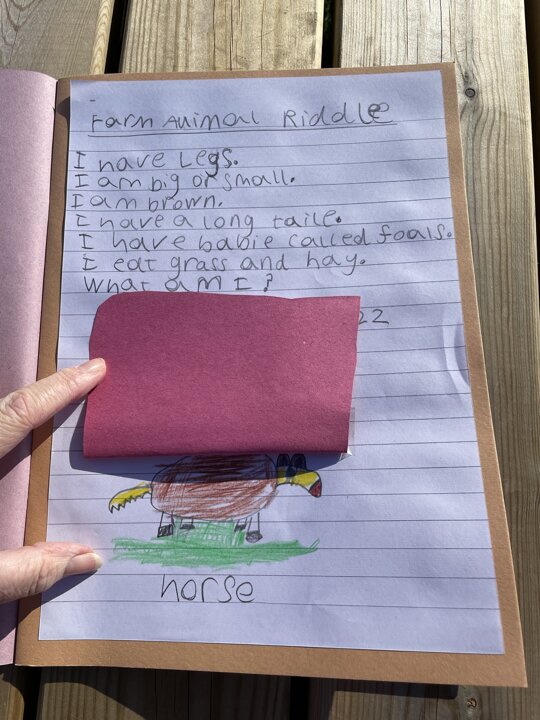 Farm Animal Riddle
I have Legs.
I am big or small.
I am brown.
I have a long taile.
I have babie called foals.
I eat grass and hay.
What am I?
22
horse